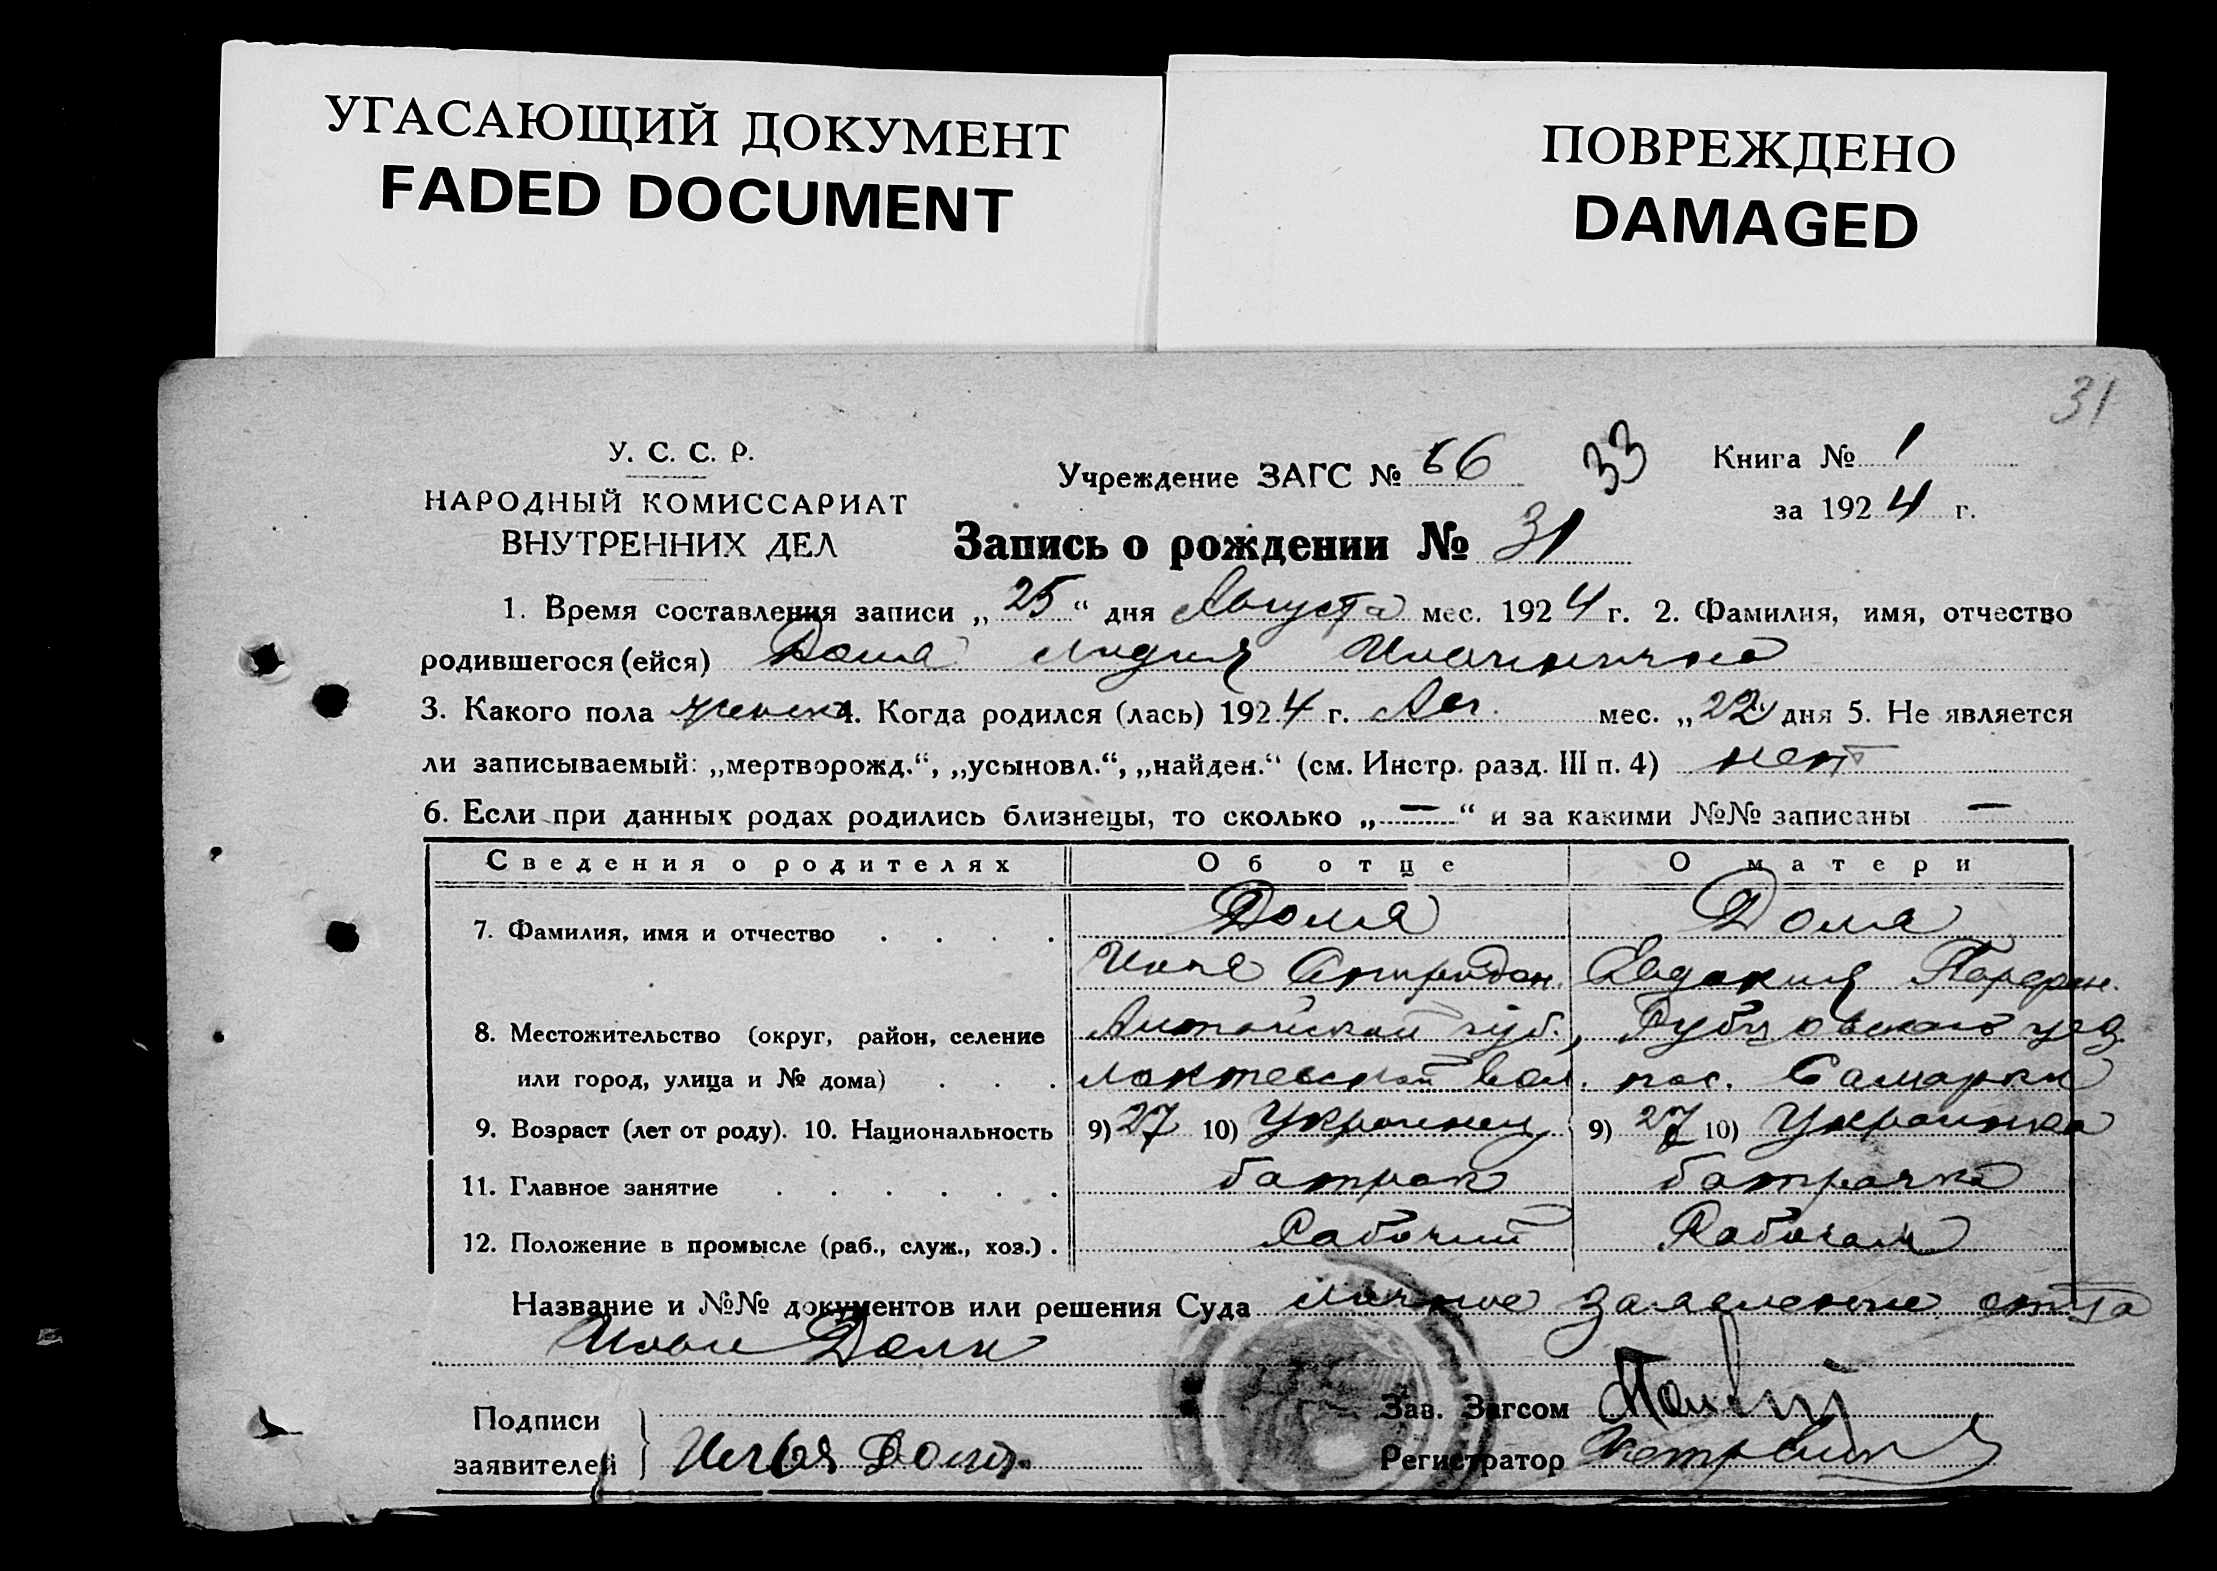 УГАСАЮЩИЙ ДОКУМЕНТ
FADED DOCUMENT
ПОВРЕЖДЕНО
DAMAGED
31
У. С. С. Р.
НАРОДНЫЙ КОМИССАРИАТ
ВНУТРЕННИХ ДЕЛ
Учреждение ЗАГС № 66
33
Книга № 1
за 1924 г.
Запись о рождении № 31
1. Время составления записи „25“ дня Августа мес. 1924 г. 2. Фамилия, имя, отчество
родившегося (ейся) Доля Лидия Ильинична
3. Какого пола женск 4. Когда родился (лась) 1924 г. Авг. мес. „22 дня 5. Не является
ли записываемый: „мертворожд.“, „усыновл.“, „найден.“ (см. Инстр. разд. III п. 4) нет
6. Если при данных родах родились близнецы, то сколько „—“ и за какими №№ записаны —
Сведения о родителях Об отце О матери
7. Фамилия, имя и отчество . . . . Доля Доля
Илья Спиридон. Евдокия
8. Местожительство (округ, район, селение Алтайской губ., Рубцовского уез.
или город, улица и № дома) . . . Локтевской вол. пос. Самарки
9. Возраст (лет от роду). 10. Национальность 9) 27 10) Украинец 9) 27 10) Украинка
11. Главное занятие . . . . . . батрак батрачка
12. Положение в промысле (раб., служ., хоз.) . Рабочий Рабочая
Название и №№ документов или решения Суда личное заявление отца
Ильи Доли
Подписи
заявителей } Илья Доля
Зав. Загсом
Регистратор